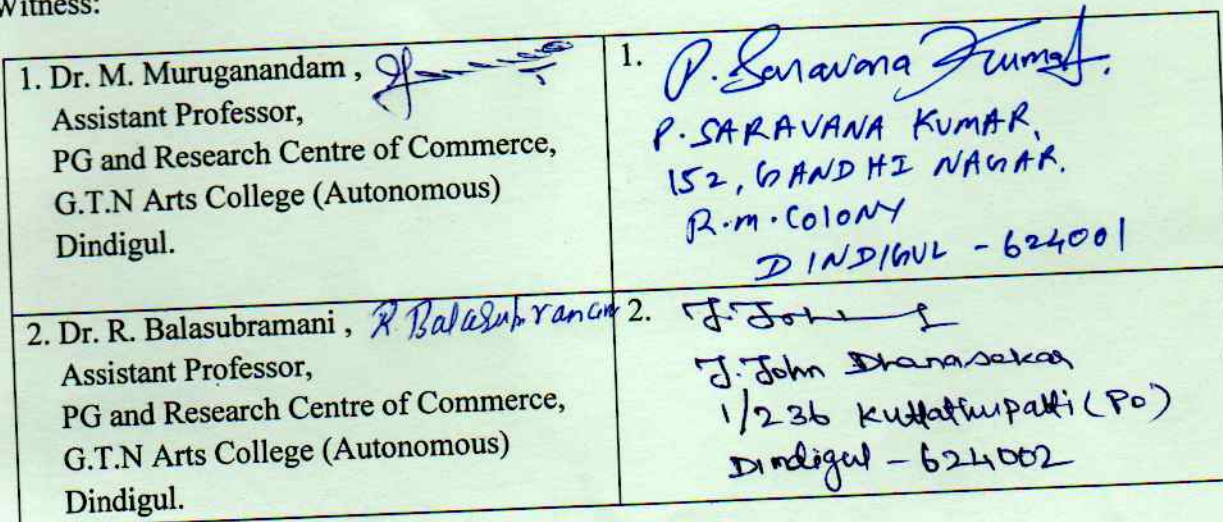 Witness:
1. Dr. M. Muruganandam ,
Assistant Professor,
PG and Research Centre of Commerce,
G.T.N Arts College (Autonomous)
Dindigul.
1. P. Saravana Kumar.
P. SARAVANA KUMAR,
152, GANDHI NAGAR.
R.m. COLONY
DINDIGUL - 624001
2. Dr. R. Balasubramani , R. Balasubramani
Assistant Professor,
PG and Research Centre of Commerce,
G.T.N Arts College (Autonomous)
Dindigul.
2. J. John
J. John Dhanasekar
1/236 Kuttathupatti (Po)
Dindigul - 624002